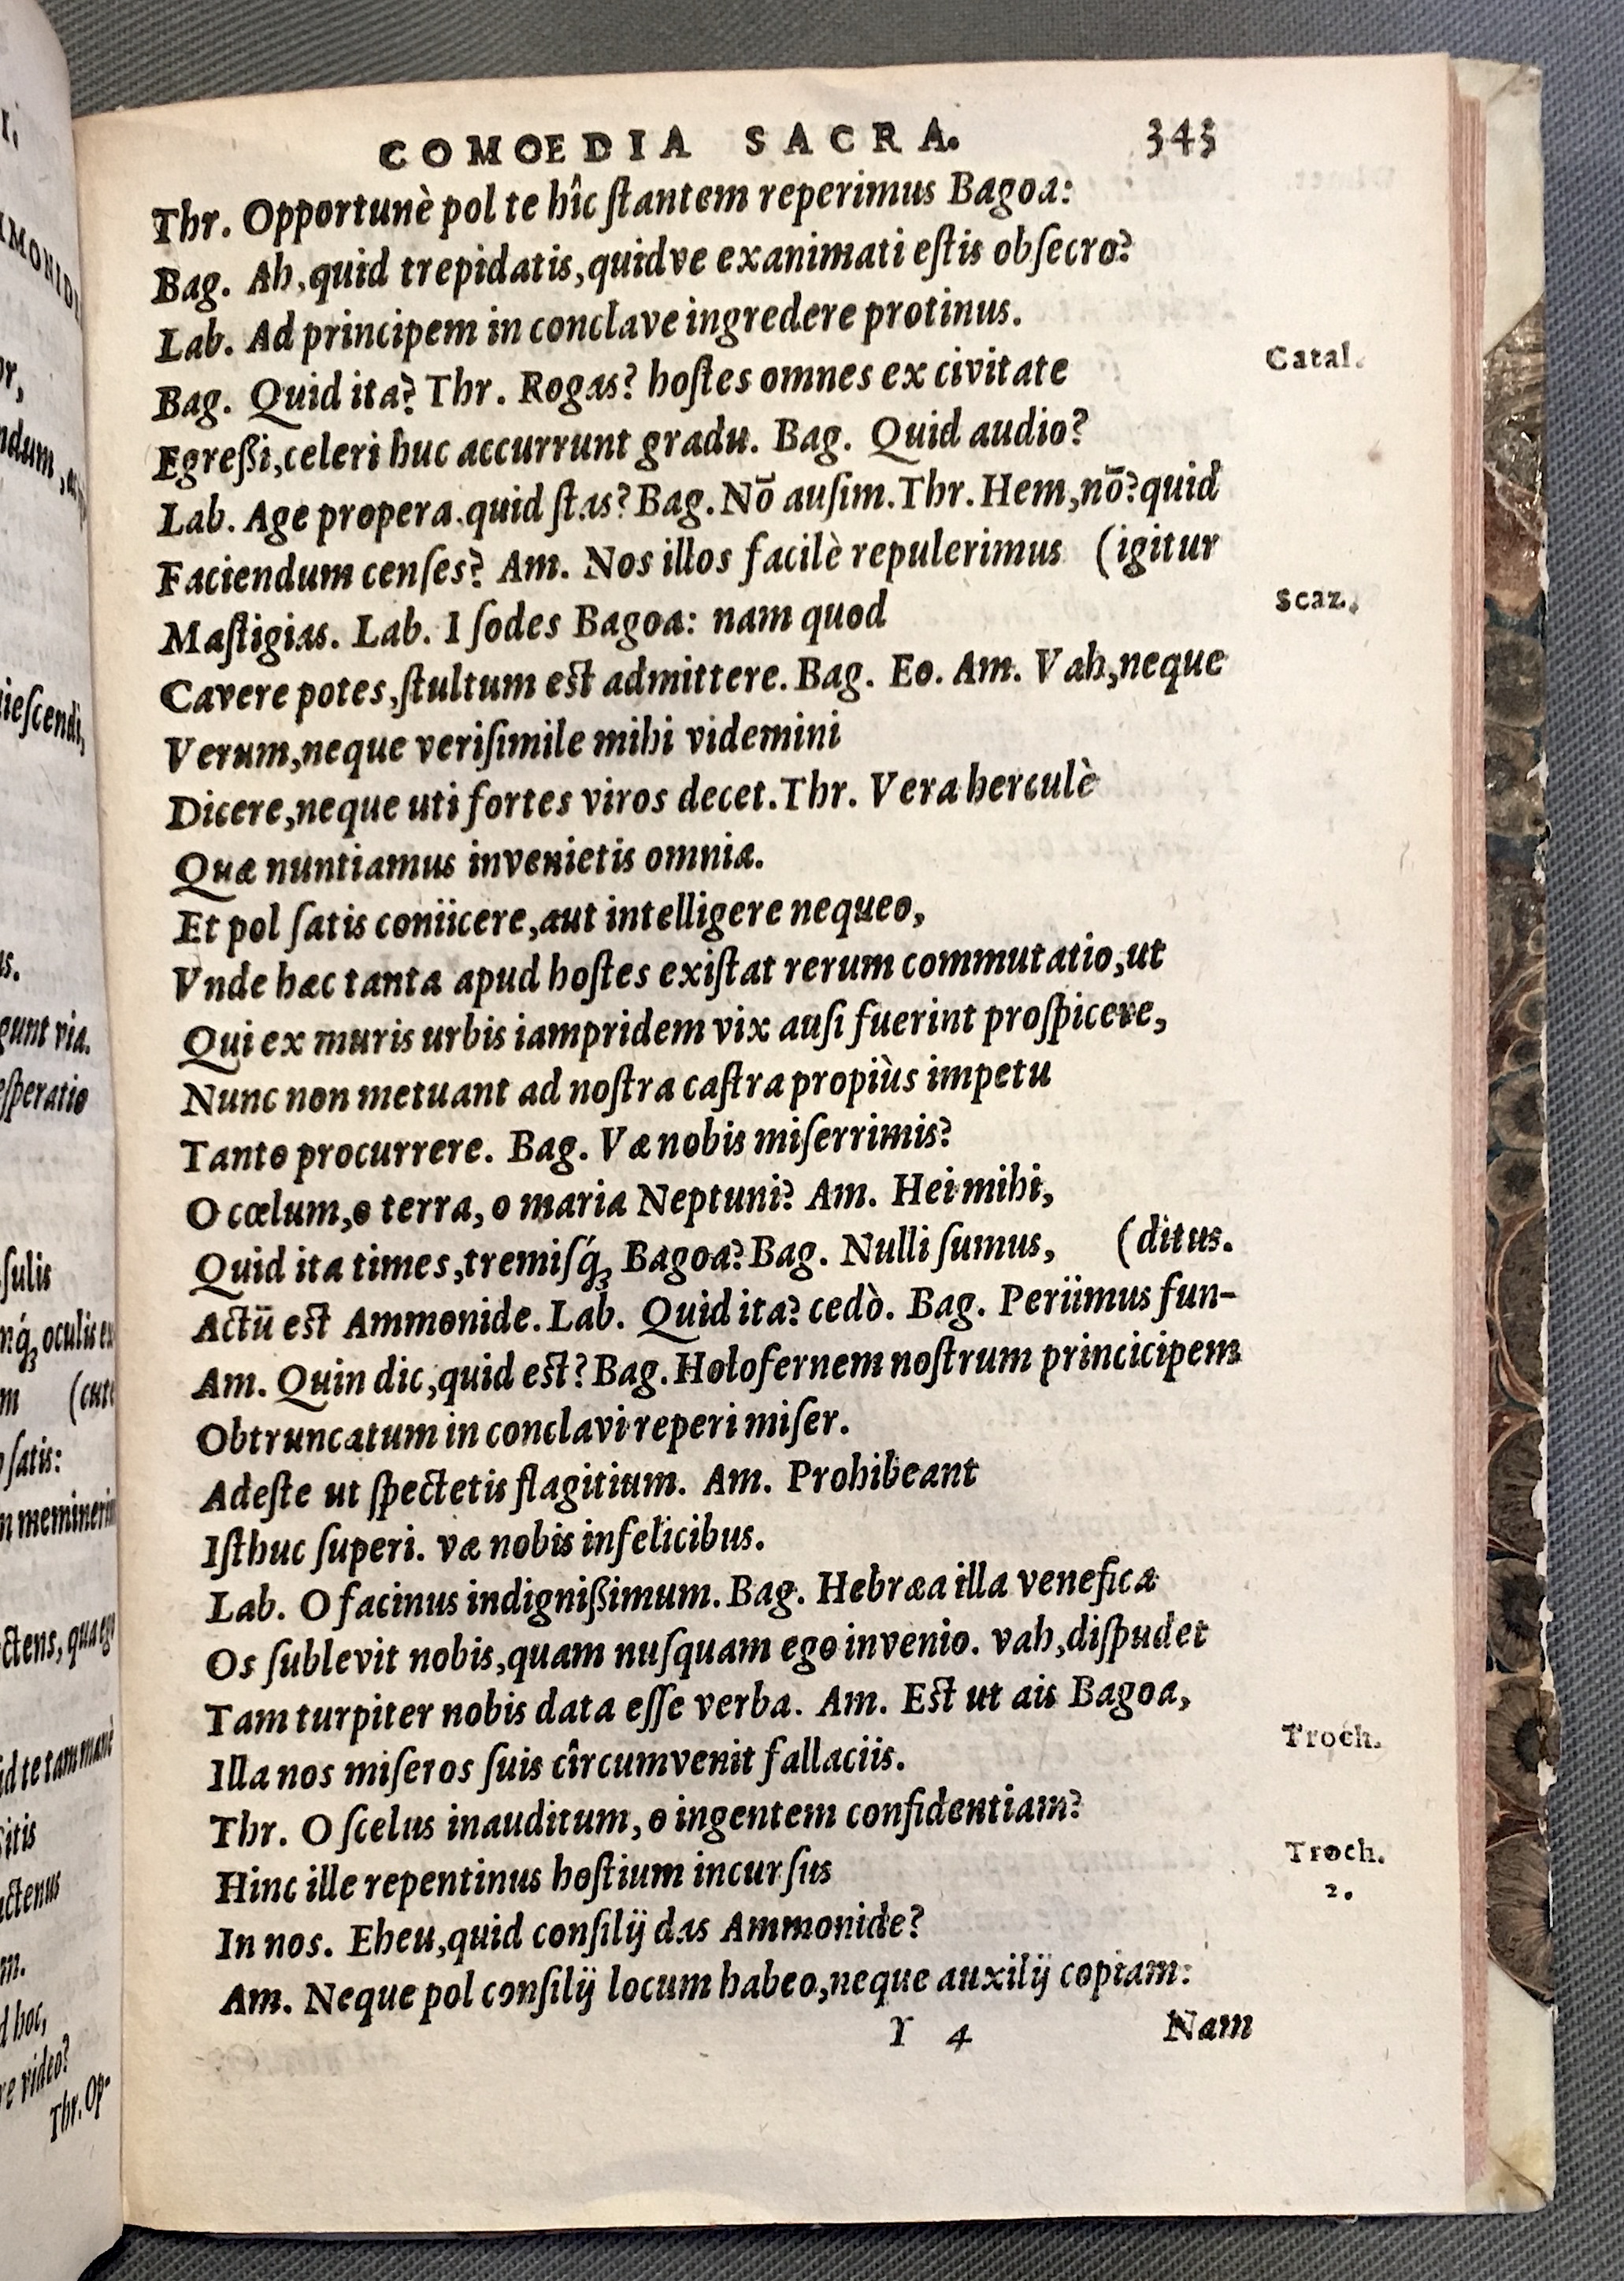 COMOEDIA SACRA. 343
Thr. Opportunè pol te hîc ſtantem reperimus Bagoa:
Bag. Ah, quid trepidatis, quidve exanimati eſtis obſecro?
Lab. Ad principem in conclave ingredere protinus.
Catal.
Bag. Quid ita? Thr. Rogas? hoſtes omnes ex civitate
Egreßi, celeri huc accurrunt gradu. Bag. Quid audio?
Lab. Age propera. quid ſtas? Bag. Nō auſim. Thr. Hem, nō? quid
Faciendum cenſes? Am. Nos illos facilè repulerimus (igitur
Scaz.
Maſtigias. Lab. I ſodes Bagoa: nam quod
Cavere potes, ſtultum eſt admittere. Bag. Eo. Am. Vah, neque
Verum, neque veriſimile mihi videmini
Dicere, neque uti fortes viros decet. Thr. Vera herculè
Quæ nuntiamus invenietis omnia.
Et pol ſatis coniicere, aut intelligere nequeo,
Vnde hæc tanta apud hoſtes exiſtat rerum commutatio, ut
Qui ex muris urbis iampridem vix auſi fuerint proſpicere,
Nunc non metuant ad noſtra caſtra propiùs impetu
Tanto procurrere. Bag. Væ nobis miſerrimis?
O cœlum, o terra, o maria Neptuni? Am. Hei mihi,
Quid ita times, tremiſq́ꝫ Bagoa? Bag. Nulli ſumus, (ditus.
Actū eſt Ammonide. Lab. Quid ita? cedò. Bag. Periimus fun-
Am. Quin dic, quid eſt? Bag. Holofernem noſtrum princicipem
Obtruncatum in conclavi reperi miſer.
Adeſte ut ſpectetis flagitium. Am. Prohibeant
Iſthuc ſuperi. væ nobis infelicibus.
Lab. O facinus indignißimum. Bag. Hebræa illa venefica
Os ſublevit nobis, quam nuſquam ego invenio. vah, diſpudet
Tam turpiter nobis data eſſe verba. Am. Eſt ut ais Bagoa,
Troch.
Illa nos miſeros ſuis cîrcumvenit fallaciis.
Thr. O ſcelus inauditum, o ingentem confidentiam?
Troch.
2.
Hinc ille repentinus hoſtium incurſus
In nos. Eheu, quid conſilij das Ammonide?
Am. Neque pol conſilij locum habeo, neque auxilij copiam:
Y 4 Nam